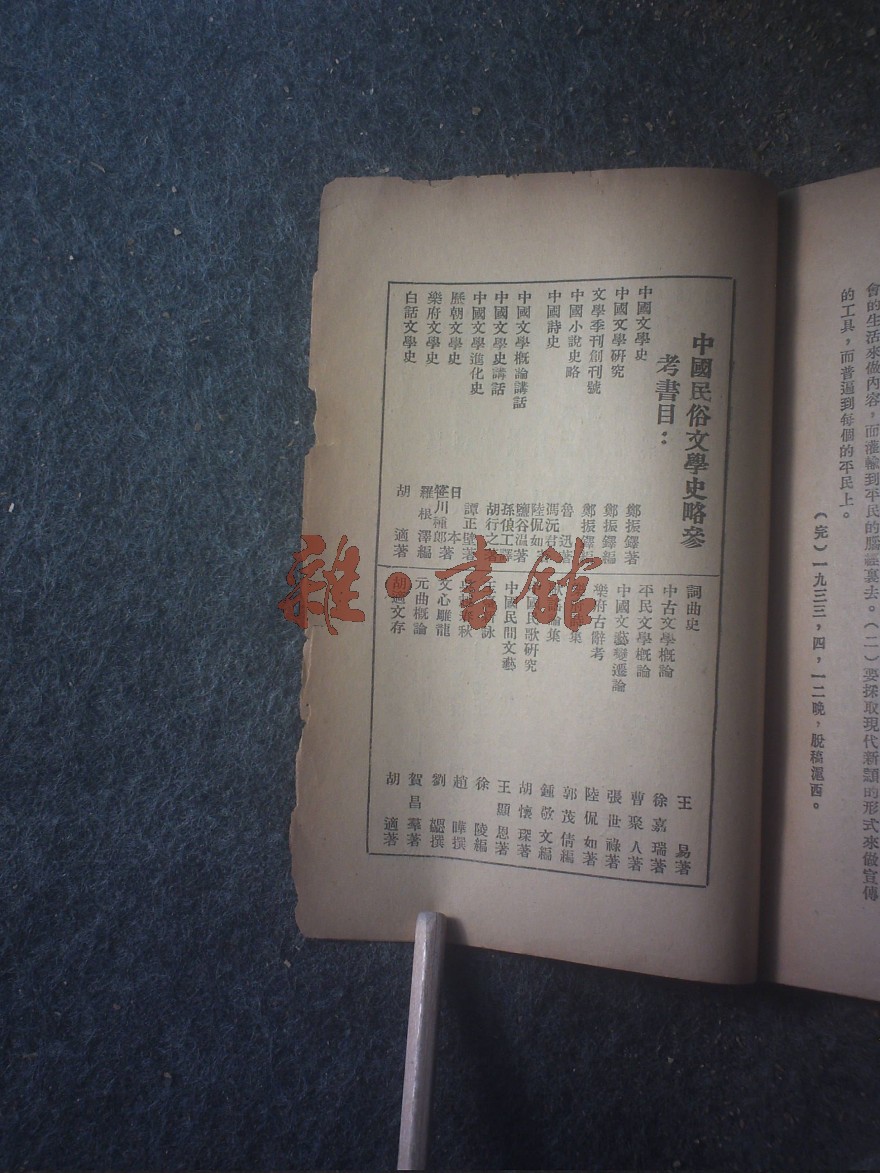 會的生活來做內容,而灌輸到平民的腦海裏去。(二)要採取現代新類的形式來做宣傳
的工具,而普遍到每個的平民上。
(完)一九三三,四,一二晚,脫稿滬西。
中國民俗文學史略參
考書目:
中國文學史 鄭振鐸著
中國文學研究 鄭振鐸編
文學季刊創刊號 鄭振鐸編
中國小說史略 魯迅著
中國詩史 馮沅君 陸侃如著
中國文學概論講話 鹽谷溫著 孫俍工譯
中國文學史講話 胡行之著
中國文學進化史 譚正璧著
歷朝文學史 日本 笹川種郎著
樂府文學史 羅根澤編
白話文學史 胡適著
詞曲史 王易著
中古文學概論 徐嘉瑞著
平民文學概論 曹聚人著
中國文藝變遷論 張世祿著
樂府古辭考 陸侃如著
集 郭茂倩編
集 鍾敬文編
民歌研究 胡懷琛著
中國民間文藝 王顯恩著
詠 徐陵編
秋 趙曄撰
文心雕龍 劉勰撰
元曲概論 賀昌羣著
胡適文存 胡適著
雜·書館